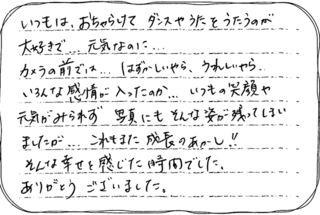 いつもは、おちゃらけて ダンスやうたをうたうのが
大好きで… 元気なのに…
カメラの前では… はずかしいやら、うれしいやら、
いろんな感情が入ったのか… いつもの笑顔や
元気がみられず 写真にも そんな姿が残ってしまい
ましたが… これもまた 成長のあかし!!
そんな幸せを感じた時間でした。
ありがとう ございました。